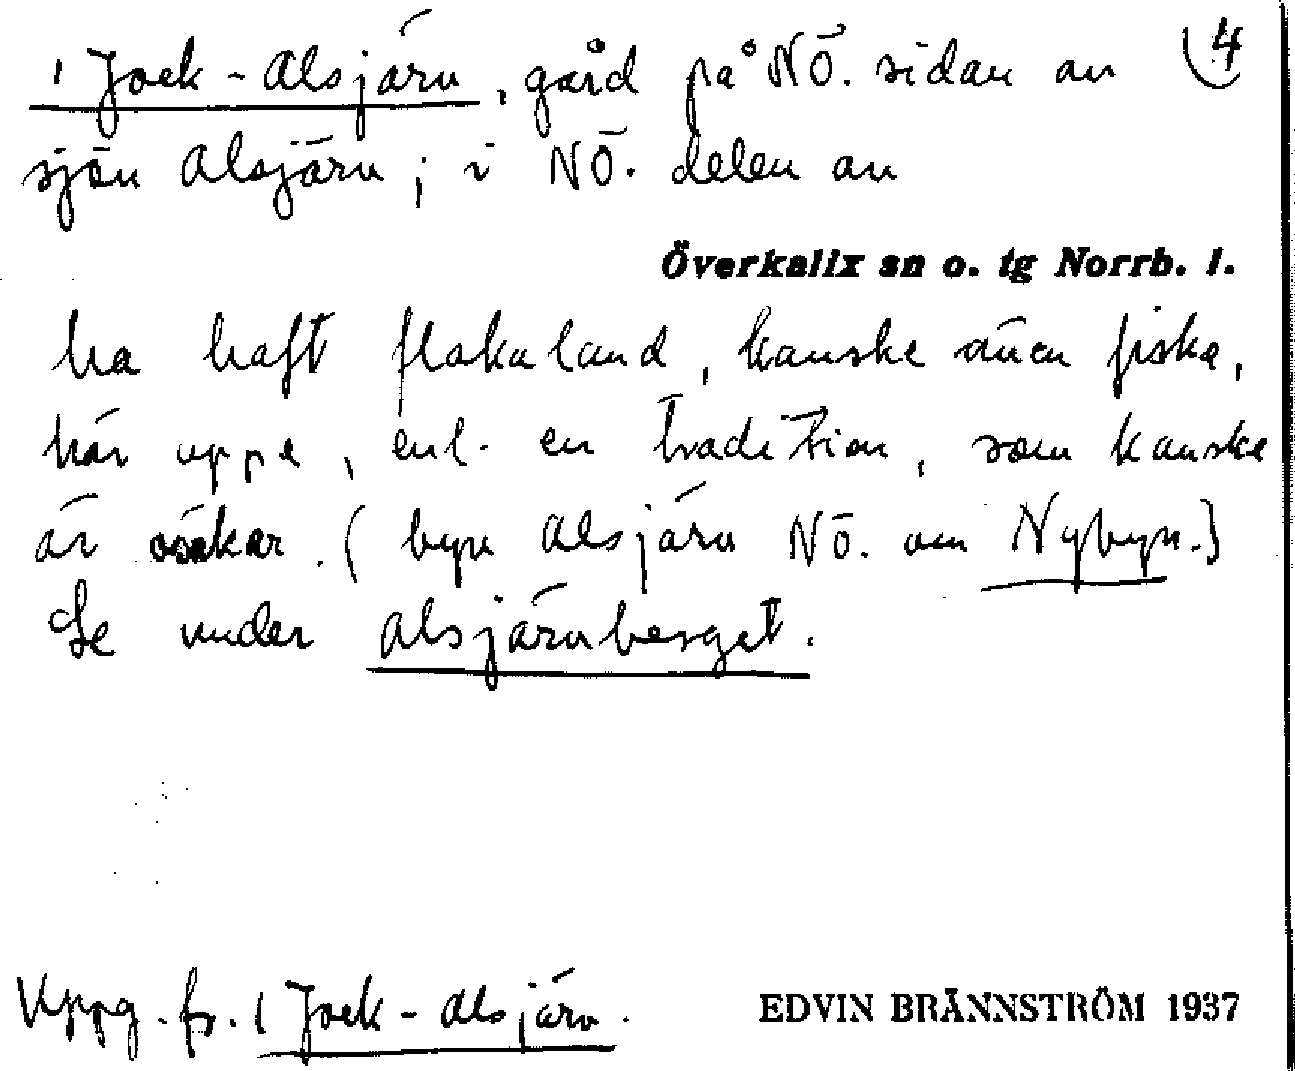 4
1 Jock-Alsjärv, gård på NÖ. sidan av
sjön Alsjärv; i NÖ. delen av
Överkalix sn o. tg Norrb. l.
ha haft flakaland, kanske även fiske,
här uppe, enl. en tradition, som kanske
är osäker. (byn Alsjärv NÖ. om Nybyn.)
Se under Alsjärvberget.
Uppg. fr. 1 Jock-Alsjärv.
EDVIN BRÄNNSTRÖM 1937